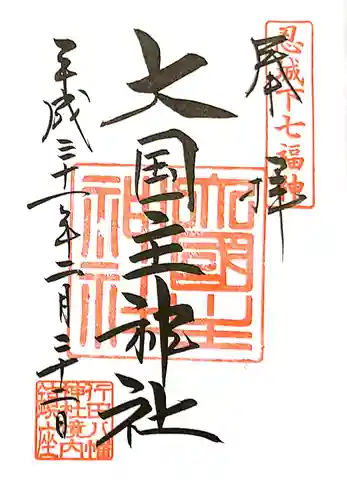 奉拝
忍城下七福神
大国主神社
大國主神社
平成三十一年二月二十二日
行田八幡
神社境内